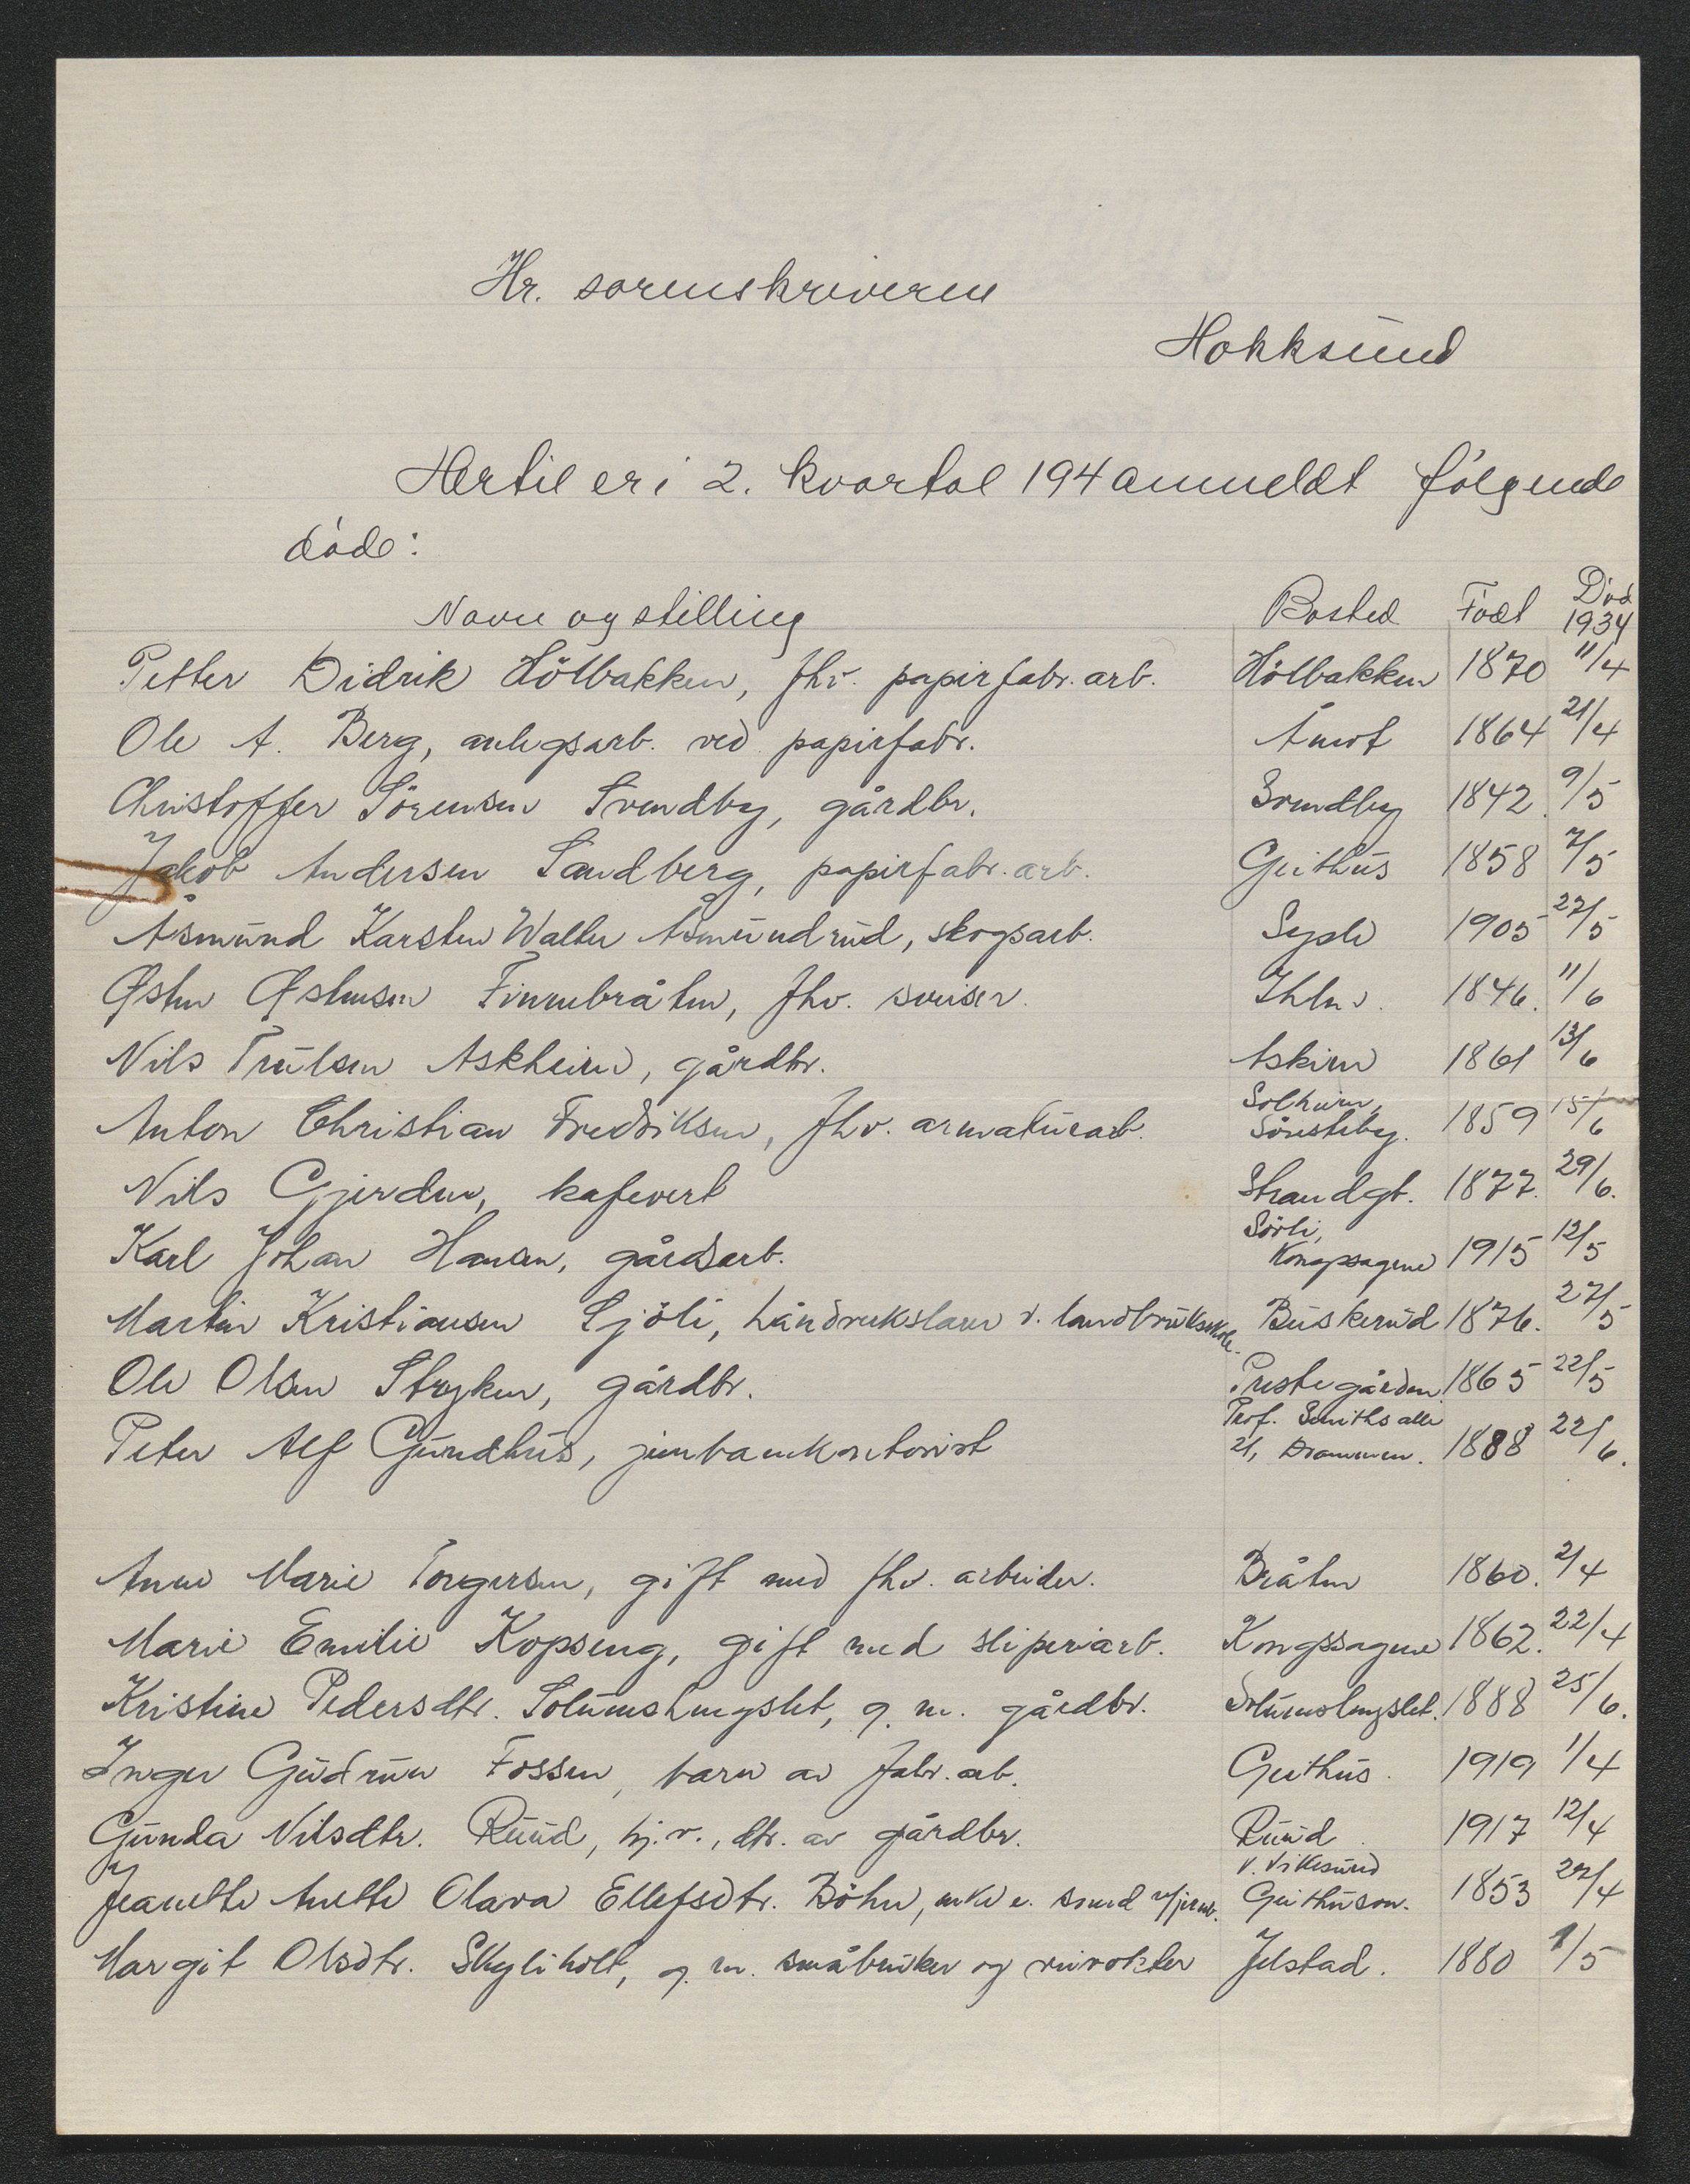 Hr. sorenskriveren
Hokksund
Hertil er i 2. kvartal 194 anmeldt følgende
døde:
Navn og stilling Bosted Født Død 1934
Petter Didrik Hölbakken, fhv. papirfabr. arb. Hölbakken 1870 11/4
Ole A. Berg, anlegsarb. ved papirfabr. Åmot 1864 21/4
Christoffer Sörensen Svendby, gårdbr. Svendby 1842 9/5
Jakob Andersen Sandberg, papirfabr. arb. Geithus 1858 7/5
Åsmund Karsten Walter Åsmundrud, skogsarb. Sysle 1905 27/5
Østen Østensen Finnebråten, fhv. sveiser. Ihlen. 1846. 11/6
Nils Trulsen Askheim, gårdbr. Askim 1861 13/6
Anton Christian Fredriksen, fhv. armaturarb. Solheim, Sönsteby. 1859 15/6
Nils Gjerden, kafevert Strandgt. 1877. 29/6.
Karl Johan Hansen, gårdsarb. Sörli, Kongssagene 1915 12/5
Martin Kristiansen Sjöli, håndverkslærer v. landbruksskole. Buskerud 1876. 27/5
Ole Olsen Stryken, gårdbr. Prestegården 1865 22/5
Peter Alf Gundhus, jernbanekontorist Prof. Smiths alle 21, Drammen. 1888 22/6.
Anne Marie Torgersen, gift med fhv. arbeider. Bråten 1860. 2/4
Marie Emilie Kopseng, gift med sliperiarb. Kongssagene 1862. 22/4
Kristine Pedersdtr. Solumslengslet, g. m. gårdbr. Solumslengslet. 1888 25/6.
Inger Gudrun Fossen, barn av fabr. arb. Geithus. 1919 1/4
Gunda Nilsdtr. Ruud, hj. v., dtr. av gårdbr. Ruud. 1917 12/4
Jeanette Anette Olava Ellefsdtr. Böhn, enke e. smed v/jernb. v. Vikesund Geithuson. 1853 22/4
Margit Olsdtr. Skyliholt, g. m. småbruker og veivokter Jelstad. 1880 1/5